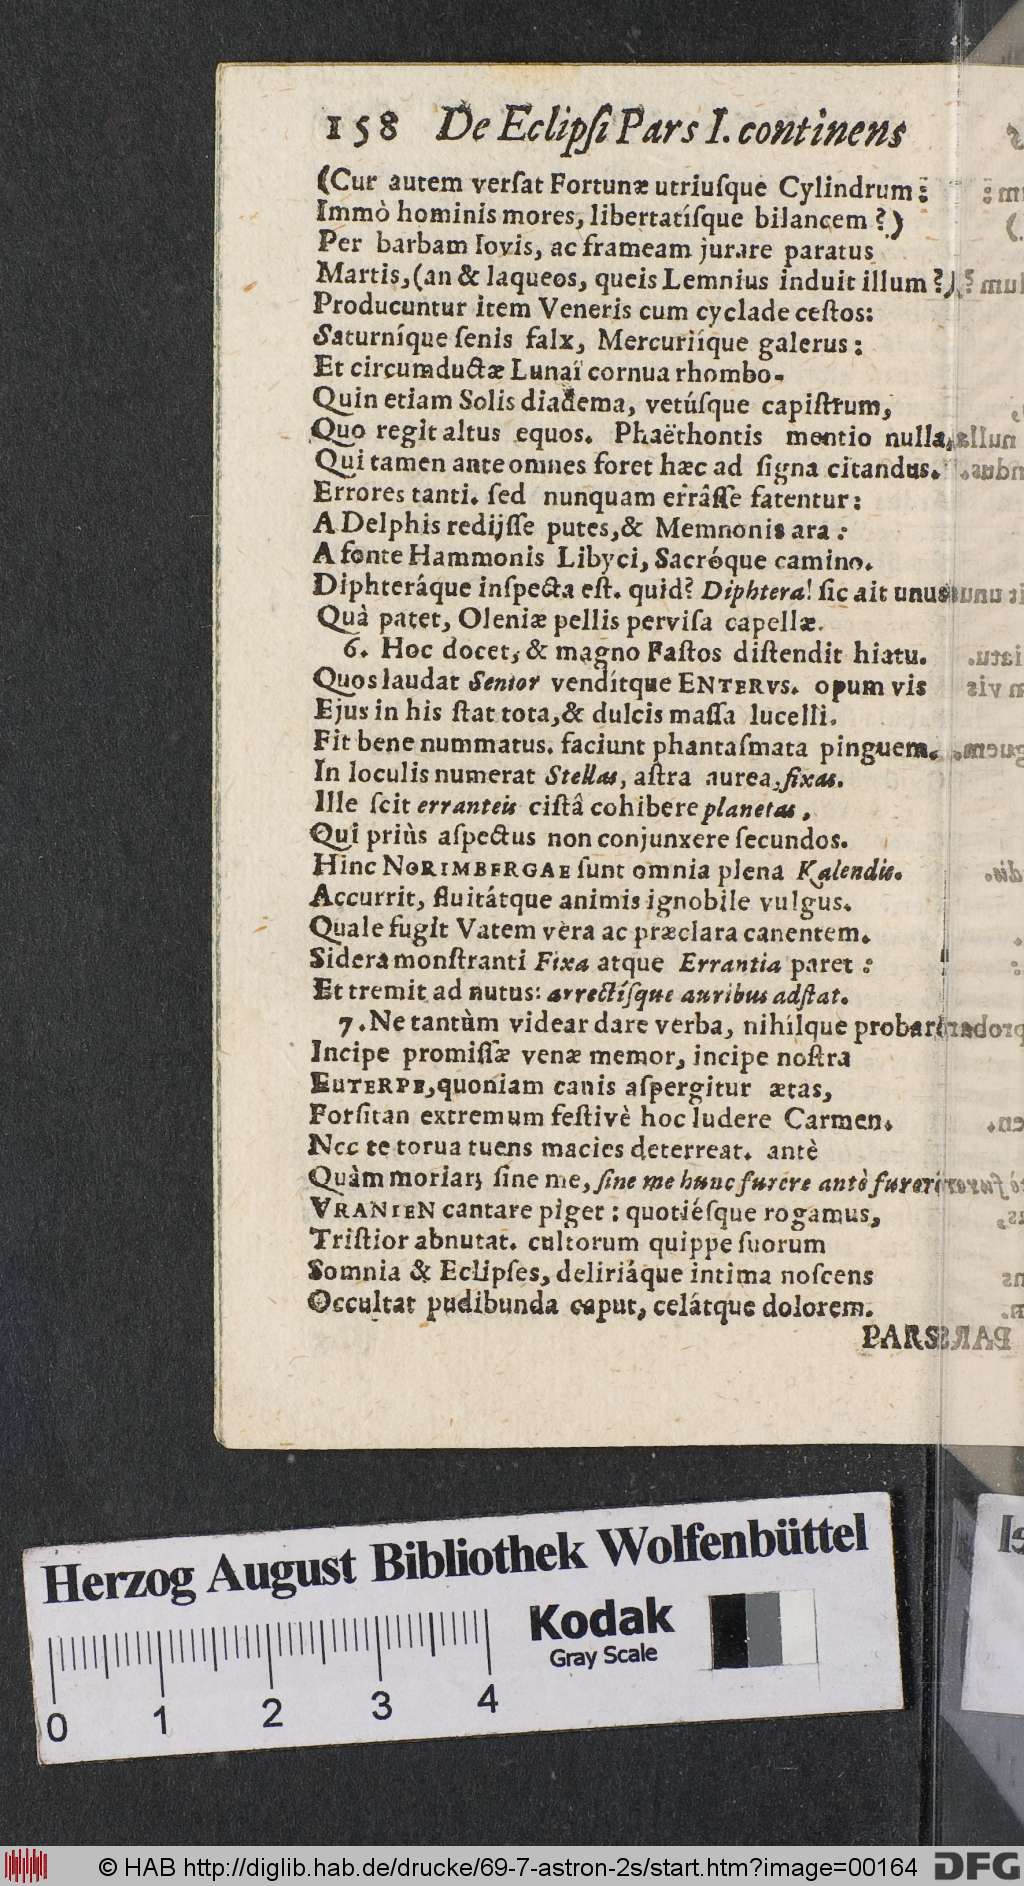 158 De Eclipſi Pars I. continens
(Cur autem verſat Fortunæ utriuſque Cylindrum:
Immò hominis mores, libertatíſque bilancem?)
Per barbam Iovis, ac frameam jurare paratus
Martis, (an & laqueos, queis Lemnius induit illum?)
Producuntur item Veneris cum cyclade ceſtos:
Saturníque ſenis falx, Mercuriíque galerus:
Et circumductæ Lunaï cornua rhombo.
Quin etiam Solis diadema, vetúſque capiſtrum,
Quo regit altus equos. Phaëthontis mentio nulla,
Qui tamen ante omnes foret hæc ad ſigna citandus.
Errores tanti. ſed nunquam errâſſe fatentur:
A Delphis redijſſe putes, & Memnonis ara:
A fonte Hammonis Libyci, Sacróque camino.
Diphteráque inſpecta eſt. quid? Diphtera! ſic ait unus
Quà patet, Oleniæ pellis perviſa capellæ.
6. Hoc docet, & magno Faſtos diſtendit hiatu.
Quos laudat Senior vendítque ENTERVS. opum vis
Ejus in his ſtat tota, & dulcis maſſa lucelli.
Fit bene nummatus. faciunt phantaſmata pinguem.
In loculis numerat Stellas, aſtra aurea, fixas.
Ille ſcit erranteis ciſtâ cohibere planetas,
Qui priùs aſpectus non conjunxere ſecundos.
Hinc NORIMBERGAE ſunt omnia plena Kalendis.
Accurrit, fluitátque animis ignobile vulgus.
Quale fugit Vatem vèra ac præclara canentem.
Sidera monſtranti Fixa atque Errantia paret:
Et tremit ad nutus: arrectíſque auribus adſtat.
7. Ne tantùm videar dare verba, nihílque probari
Incipe promiſſæ venæ memor, incipe noſtra
EUTERPE, quoniam canis aſpergitur ætas,
Forſitan extremum feſtivè hoc ludere Carmen.
Nec te torua tuens macies deterreat. antè
Quàm moriar; ſine me, ſine me hunc furere antè furorem
VRANIEN cantare piget: quotiéſque rogamus,
Triſtior abnutat. cultorum quippe ſuorum
Somnia & Eclipſes, deliriáque intima noſcens
Occultat pudibunda caput, celátque dolorem.
PARS
Herzog August Bibliothek Wolfenbüttel
Kodak
Gray Scale
0 1 2 3 4
© HAB http://diglib.hab.de/drucke/69-7-astron-2s/start.htm?image=00164
DFG